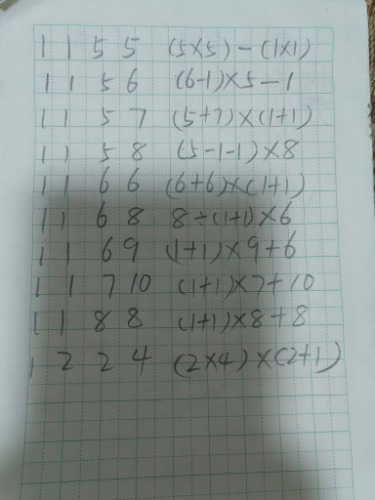 1 1 5 5 (5×5)-(1×1)
1 1 5 6 (6-1)×5-1
1 1 5 7 (5+7)×(1+1)
1 1 5 8 (5-1-1)×8
1 1 6 6 (6+6)×(1+1)
1 1 6 8 8÷(1+1)×6
1 1 6 9 (1+1)×9+6
1 1 7 10 (1+1)×7+10
1 1 8 8 (1+1)×8+8
1 2 2 4 (2×4)×(2+1)